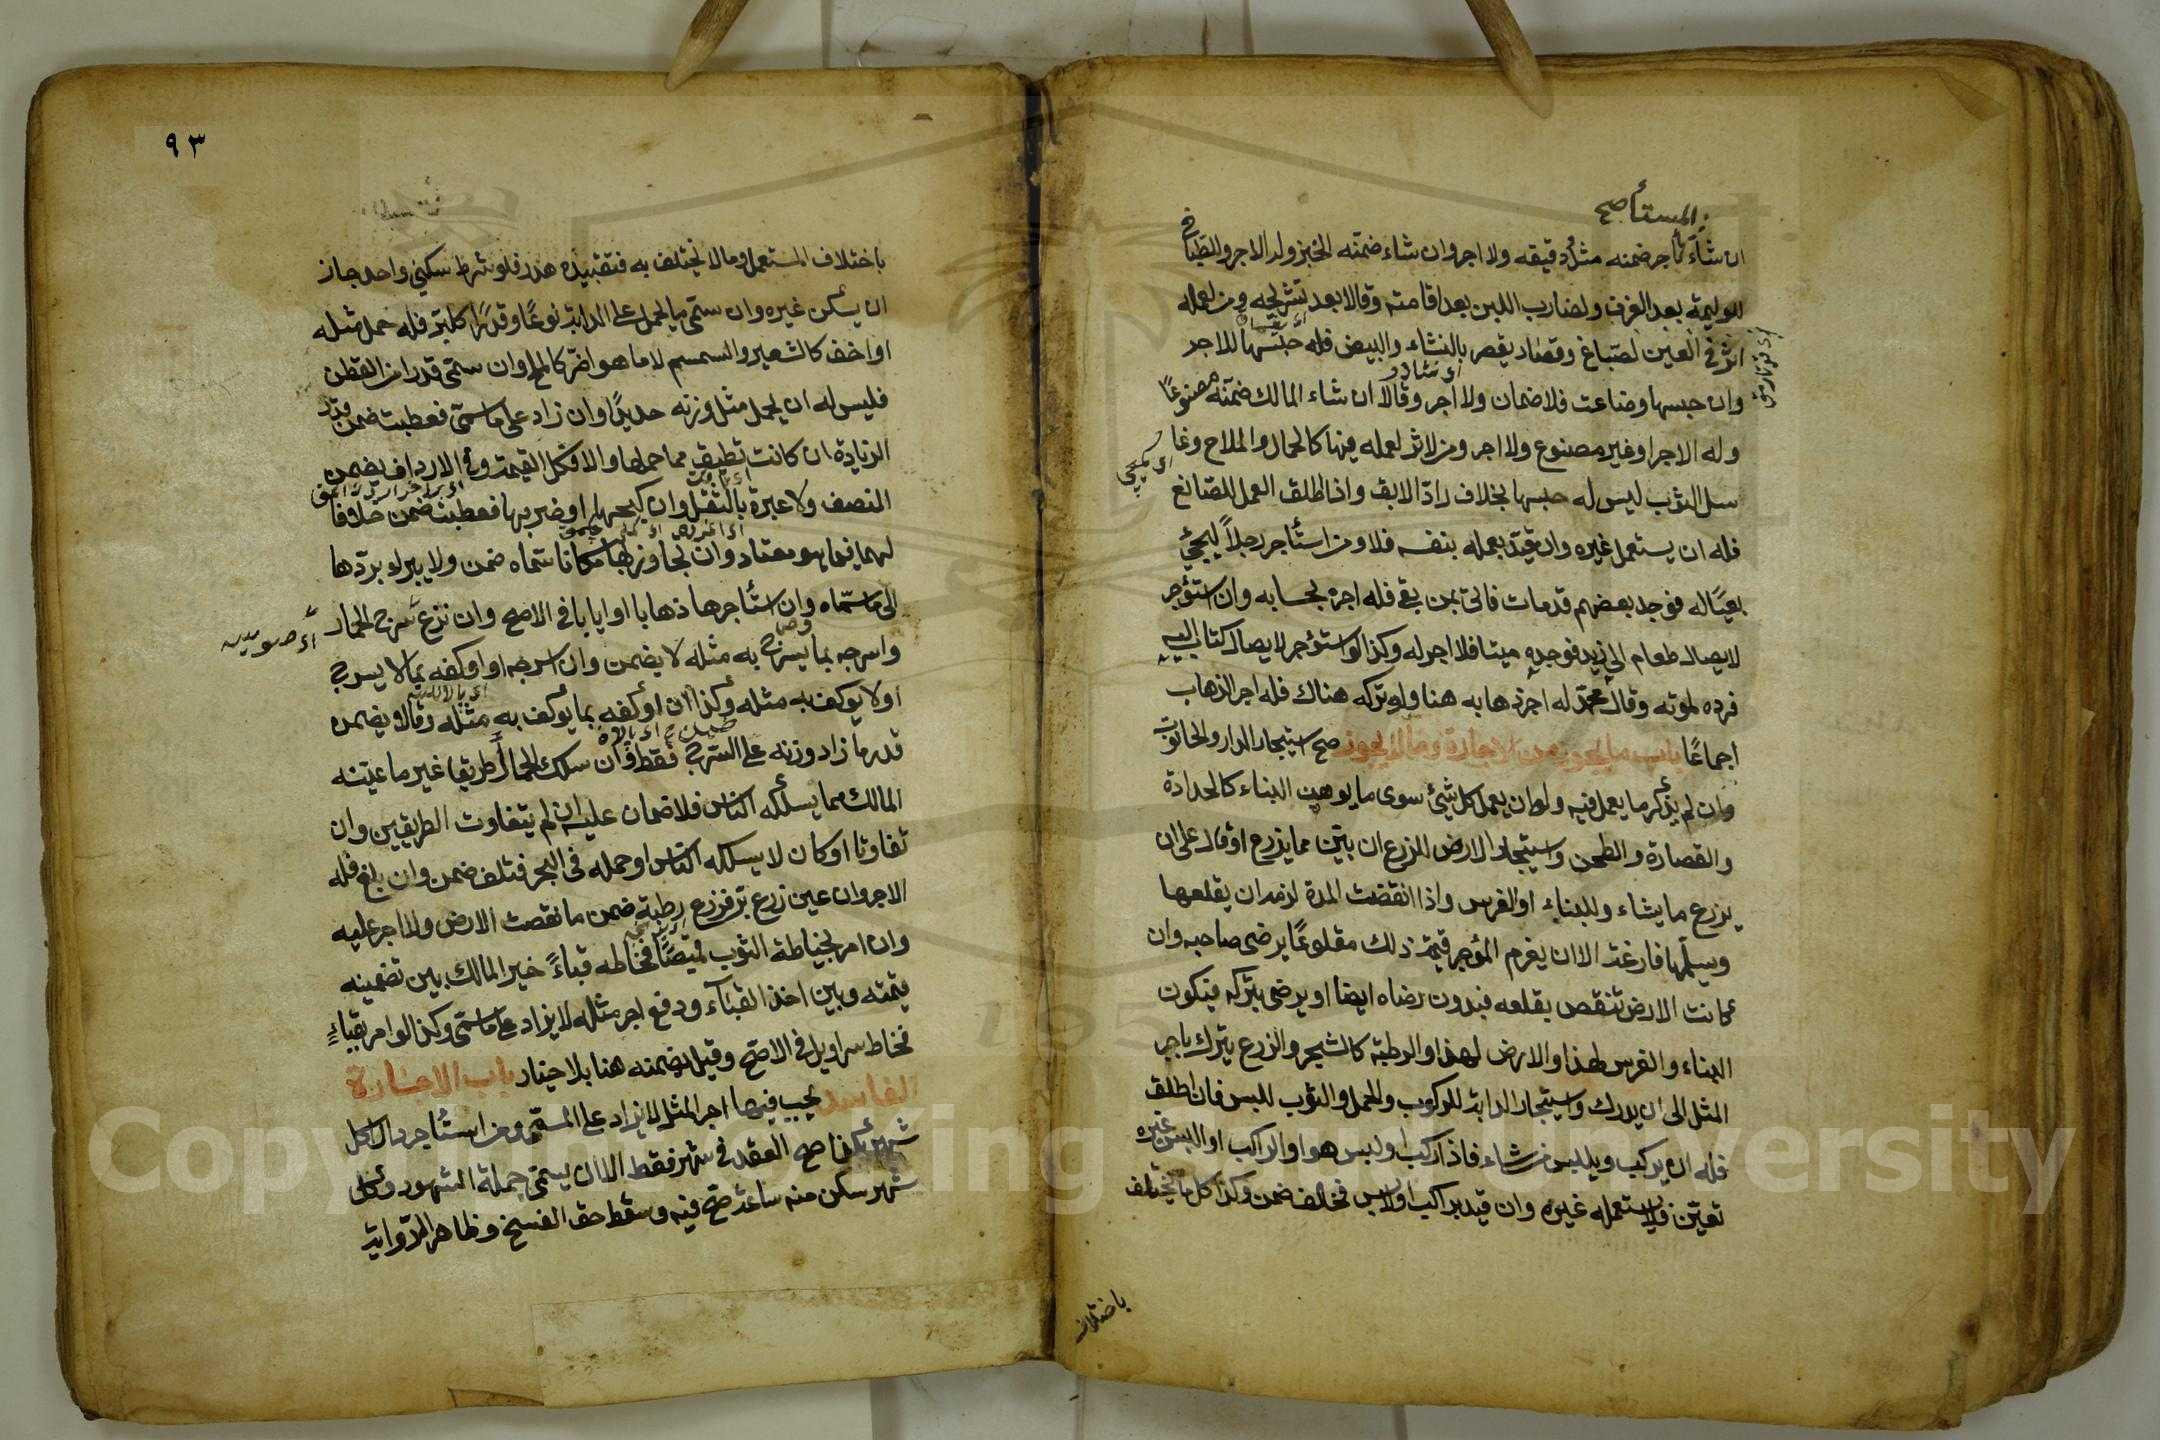 المستأ صح
ان شاء المستأجر ضمنه مثل دقيقه ولا اجر وان شاء ضمنه الخبز وله الاجر والطباخ
للوليمة بعد الغرف ولضارب اللبن بعد اقامته وقالا بعد تشريجه ومن لعمله
اثر في العين لصباغ وقصار يقصر بالنشاء والبيض فله حبسها للاجر
وان حبسها وضاعت فلا ضمان ولا اجر وقالا ان شاء المالك ضمنه مصنوعا
وله الاجر او غير مصنوع ولا اجر ومن لا اثر لعمله فيها كالحمال والملاح وغا
سل الثوب ليس له حبسها بخلاف راد الابق واذا اطلق العمل للصانع
فله ان يستعمل غيره وان قيد بعمله بنفسه فلا ومن استأجر رجلا ليجئ
بعياله فوجد بعضهم قد مات فاتى بمن بقي فله اجره بحسابه وان استؤجر
لايصال طعام الى زيد فوجده ميتا فلا اجر له وكذا لو استؤجر لايصال كتاب اليه
فرده لموته وقال محمد له اجر ذهابه هنا ولو تركه هناك فله اجر الذهاب
اجماعا باب ما يجوز من الاجارة وما لا يجوز صح استيجار الدار والحانوت
وان لم يذكر ما يعمل فيه وله ان يعمل كل شئ سوى ما يوهن البناء كالحدادة
والقصارة والطحن واستيجار الارض للزرع ان بين مما يزرع او قال على ان
يزرع ما يشاء وللبناء او الغرس واذا انقضت المدة لزمه ان يقلعها
ويسلمها فارغة الا ان يغرم المؤجر قيمة ذلك مقلوعا برضى صاحبه وان
كانت الارض تنقص بقلعه فبدون رضاه ايضا او يرضى بتركه فيكون
البناء والغرس لهذا والارض لهذا والرطبة كالشجر والزرع يترك باجر
المثل الى ان يدرك واستيجار الدابة للركوب والحمل والثوب للبس فان اطلق
فله ان يركب ويلبس من شاء فاذا ركب او لبس هو او اركب او البس غيره
تعين فلا يستعمله غيره وان قيد براكب او لابس فخالف ضمن وكذا كل ما يختلف
باختلاف
٩٣
باختلاف المستعمل وما لا يختلف به فتقييده هدر فلو شرط سكنى واحد جاز
ان يسكن غيره وان سمى ما يحمل على الدابة نوعا وقدرا ككر بر فله حمل مثله
او اخف كالشعير والسمسم لا ما هو اضر كالملح وان سمى قدرا من القطن
فليس له ان يحمل مثل وزنه حديدا وان زاد على ما سمى فعطبت ضمن قدر
الزيادة ان كانت تطيق مما حملها والا فكل القيمة وفي الارداف يضمن
النصف ولا عبرة بالثقل وان كبحها او ضربها فعطبت ضمن خلافا
لهما فيما هو معتاد وان تجاوز بها مكانا سماه ضمن ولا يبرأ بردها
الى ما سماه وان استأجرها ذهابا او ايابا في الاصح وان نزع سرج الحمار
واسرجه بما يسرج به مثله لا يضمن وان اسرجه او اوكفه بما لا يسرج
او لا يوكف به مثله وكذا ان اوكفه بما يوكف به مثله وقالا يضمن
قدر ما زاد وزنه على السرج فقط وان سلك الحمال طريقا غير ما عينه
المالك مما يسلكه الناس فلا ضمان عليه ان لم يتفاوت الطريقين وان
تفاوتا او كان لا يسلكه الناس او حمله في البحر فتلف ضمن وان بلغ فله
الاجر وان عين زرع بر فزرع رطبة ضمن ما نقصت الارض ولا اجر عليه
وان امر بخياطة الثوب قميصا فخاطه قباء خير المالك بين تضمينه
قيمته وبين اخذ القباء ودفع اجر مثله لا يزاد على ما سمى وكذا لو امر بقباء
فخاط سراويل في الاصح وقيل يضمنه هنا بلا خيار باب الاجارة
الفاسدة يجب فيها اجر المثل لا يزاد على المسمى ومن استأجر دارا كل
شهر بكذا صح العقد في شهر فقط الا ان يسمى جملة الشهور وكل
شهر سكن منه ساعة صح فيه وسقط حق الفسخ وظاهر الرواية
Copyright © King Saud University